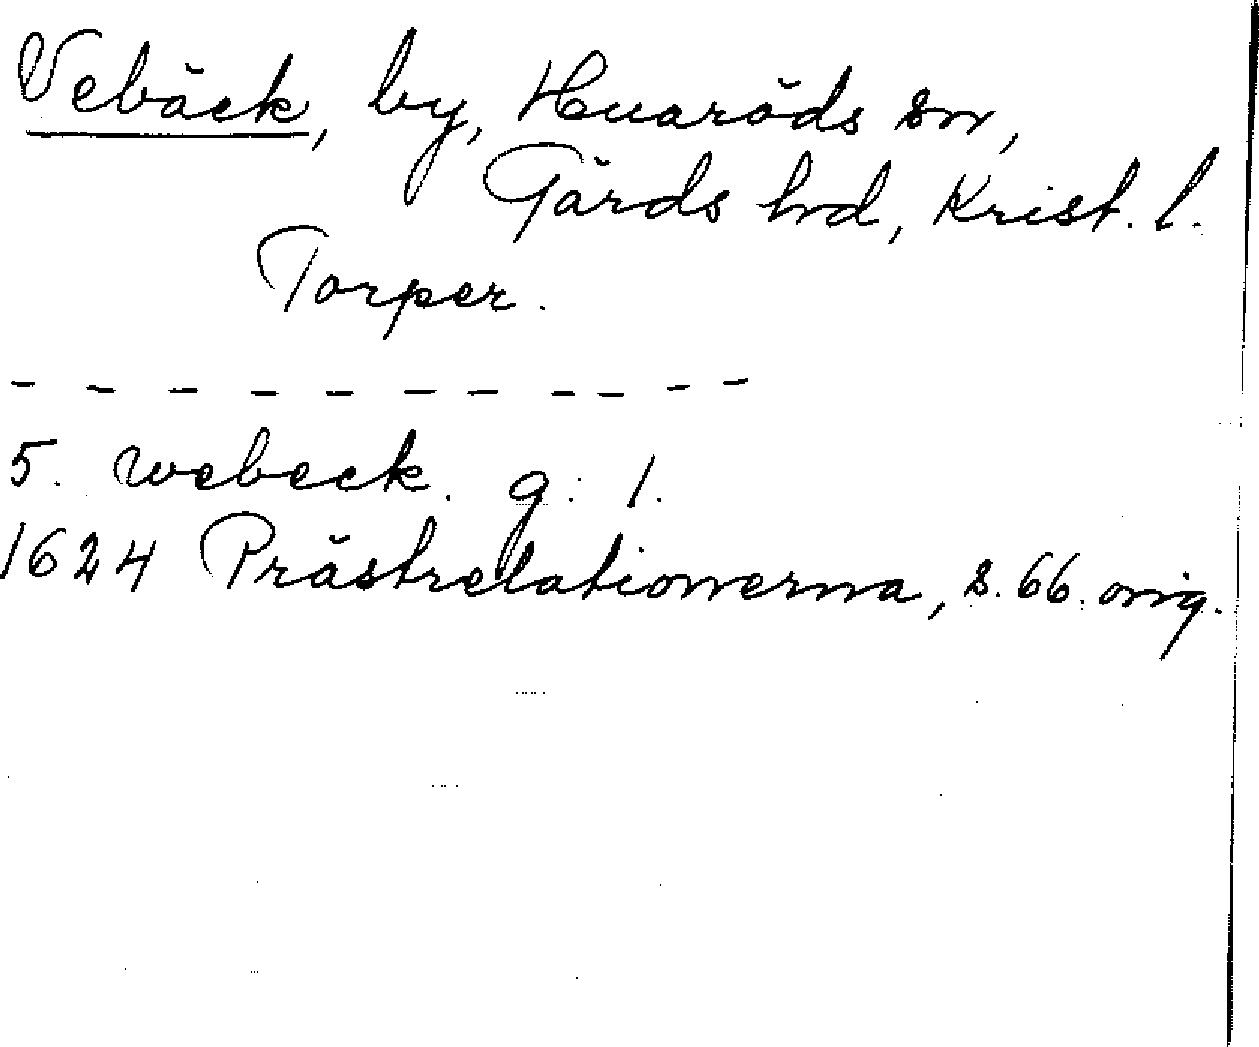 Vebäck, by, Huaröds sn,
Gärds hd, Krist. l.
Torper.
- - - - - - - - - - -
5. webeck. g: 1.
1624 Prästrelationerna, s. 66. orig.